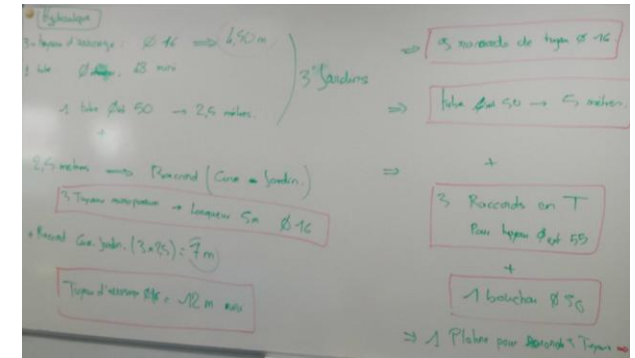 Hydraulique
3 tuyaux d'arrosage : Ø 16 ⟹ 6,50 m
1 tube Ø 68 mini
1 tube Ø ext 50 → 2,5 mètres
+
3 Jardins
2,5 mètres → Raccord (Cuve - Jardin)
→ Longueur 5m Ø 16
+ Raccord Cuve Jardin (3×2,5) = 7m
Tuyau d'arrosage Ø16 = 12 m mini
⇒ 3 morceaux de tuyau Ø 16
⇒ tube Ø ext 50 → 5 mètres
⇒ +
3 Raccords en T
Pour tuyau Ø ext 55
+
1 bouchon Ø 50
⇒ 1 Platine pour 3 Tuyaux